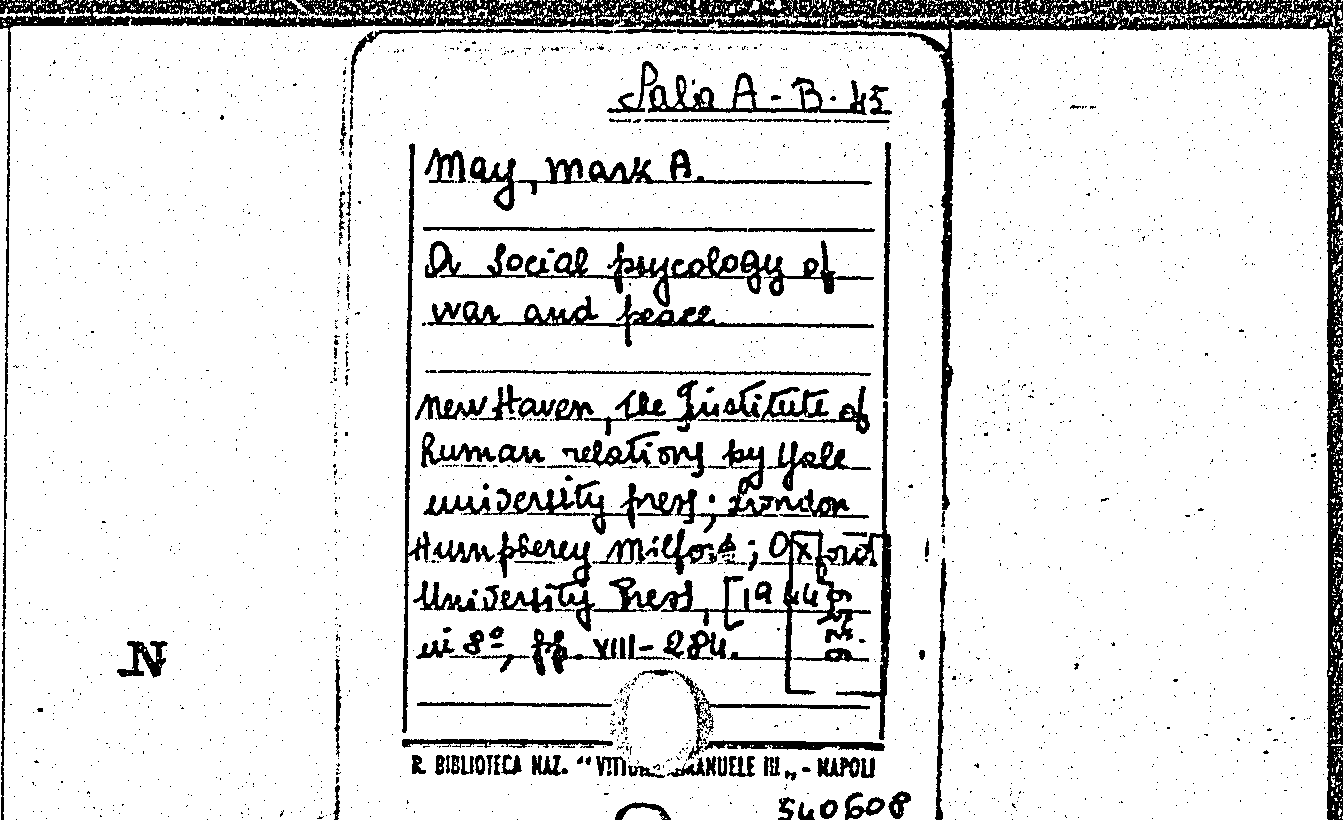 Sala A - B. 45
May, Mark A.
A social psycology of
war and peace
New Haven, the Institute of
human relations by Yale
university press; London
Humpherey Milford; Oxford
University Press, [1944]
in 8º, pp. VIII - 284.
N
R. BIBLIOTECA NAZ. “ VITTORIO EMANUELE III „ - NAPOLI
540608